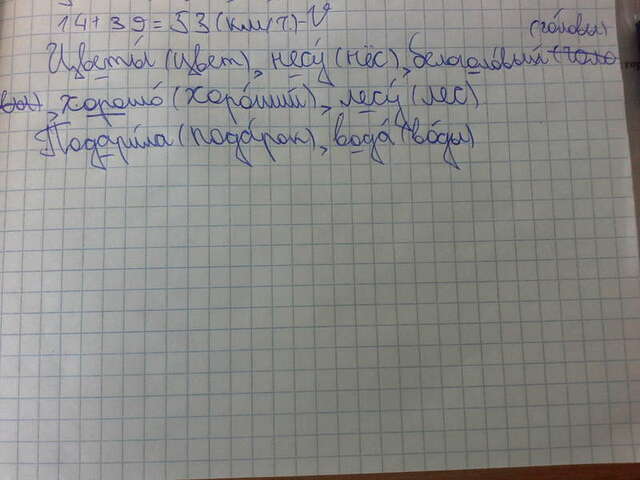 14+39=53(км/ч)-V
(го́ловы)
Цветы́ (цвет), несу́ (нёс), белоголо́вый (голо
вы), хорошо́ (хоро́ший), лесу́ (лес)
Подари́ла (пода́рок), вода́ (во́ды)